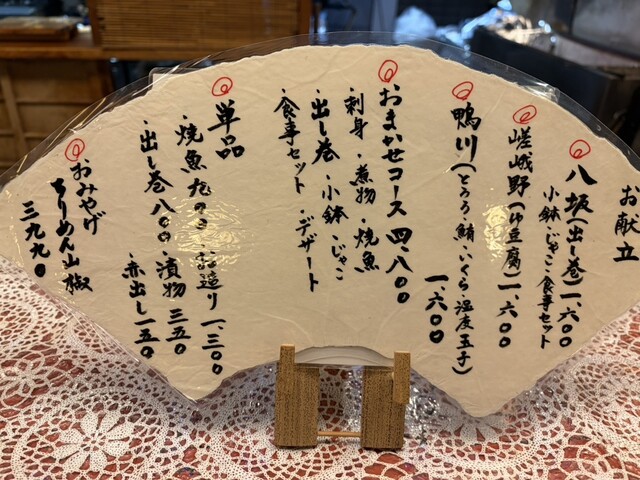 お献立
八坂(出し巻)一、六〇〇
小鉢・じゃこ・食事セット
嵯峨野(ゆ豆腐)一、六〇〇
鴨川(とろろ・鮪・いくら・温度玉子)
一、六〇〇
おまかせコース 四、八〇〇
刺身・煮物・焼魚
・出し巻・小鉢・じゃこ
・食事セット・デザート
単品
・焼魚 九〇〇 ・お造り 一、三〇〇
・出し巻 八〇〇 ・漬物 三五〇
・赤出し 一五〇
おみやげ
ちりめん山椒
三九九〇